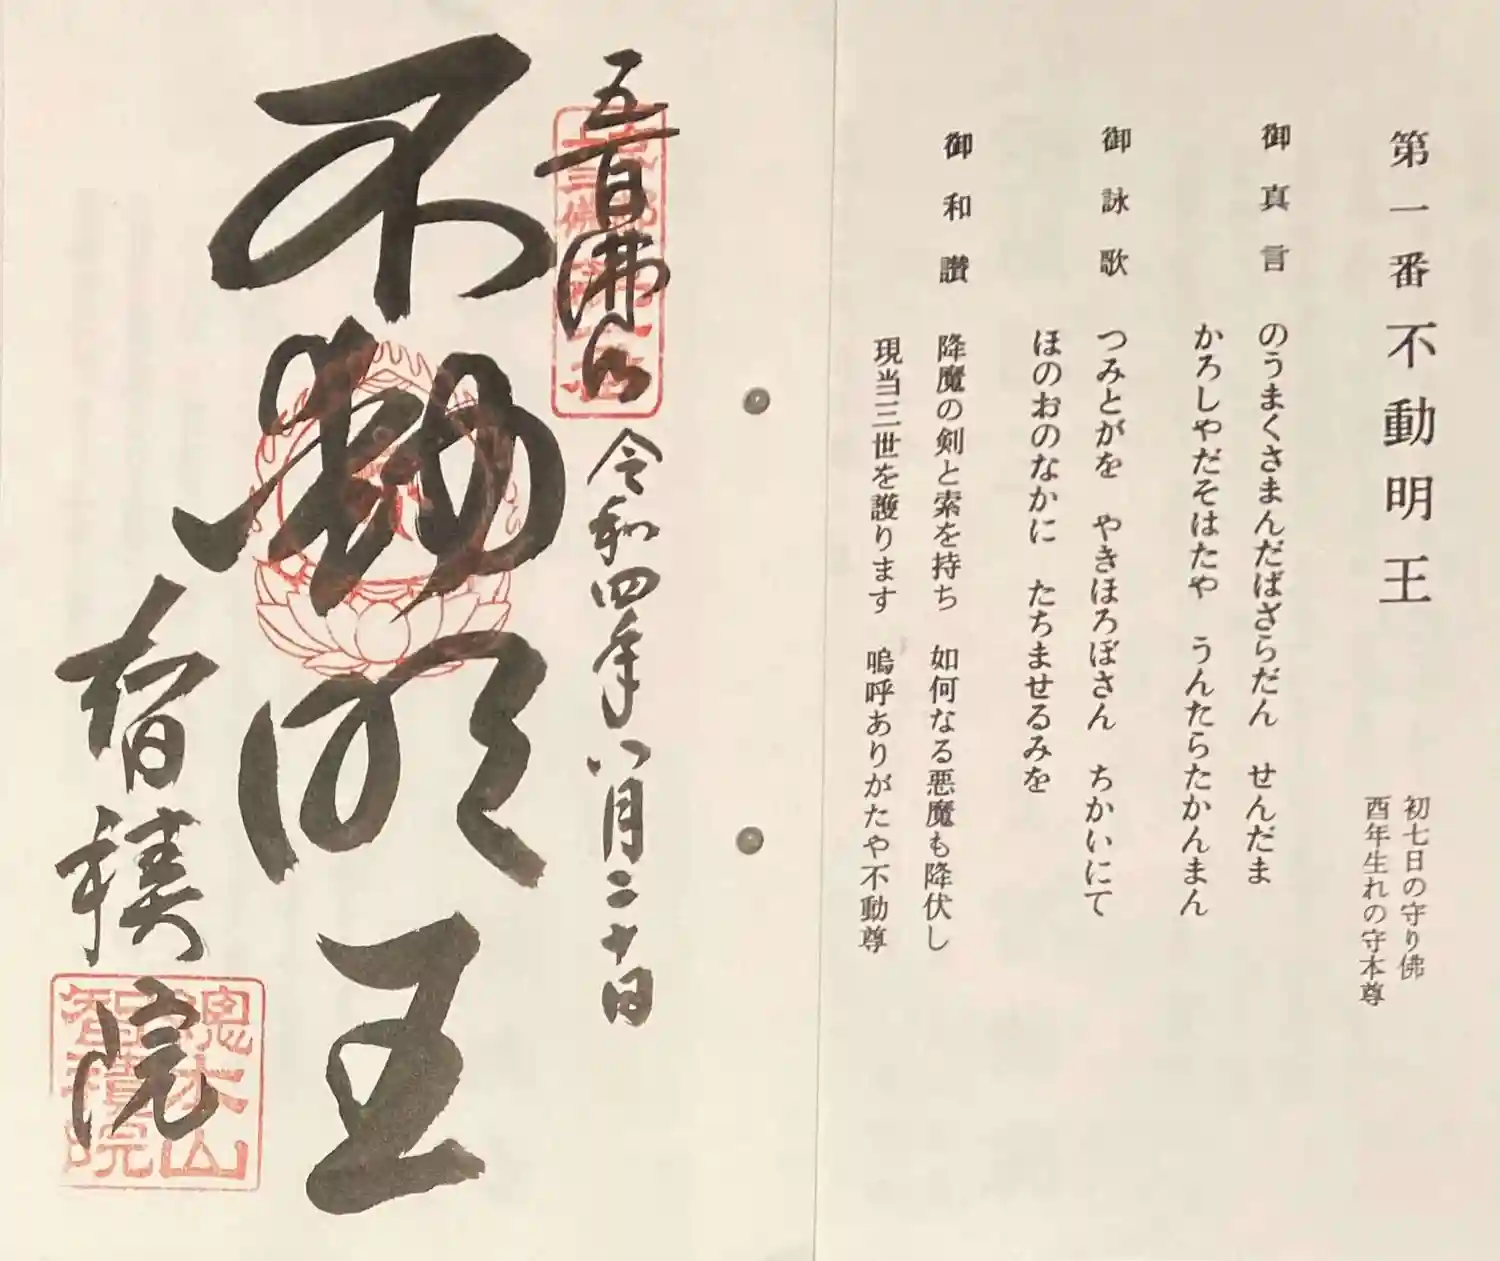 第一番 不動明王
初七日の守り佛
酉年生れの守本尊
御真言
のうまくさまんだばざらだん せんだま
かろしやだそはたや うんたらたかんまん
御詠歌
つみとがを やきほろぼさん ちかいにて
ほのおのなかに たちませるみを
御和讃
降魔の剣と索を持ち 如何なる悪魔も降伏し
現当三世を護ります 嗚呼ありがたや不動尊
令和四年八月二十日
不動明王
智積院